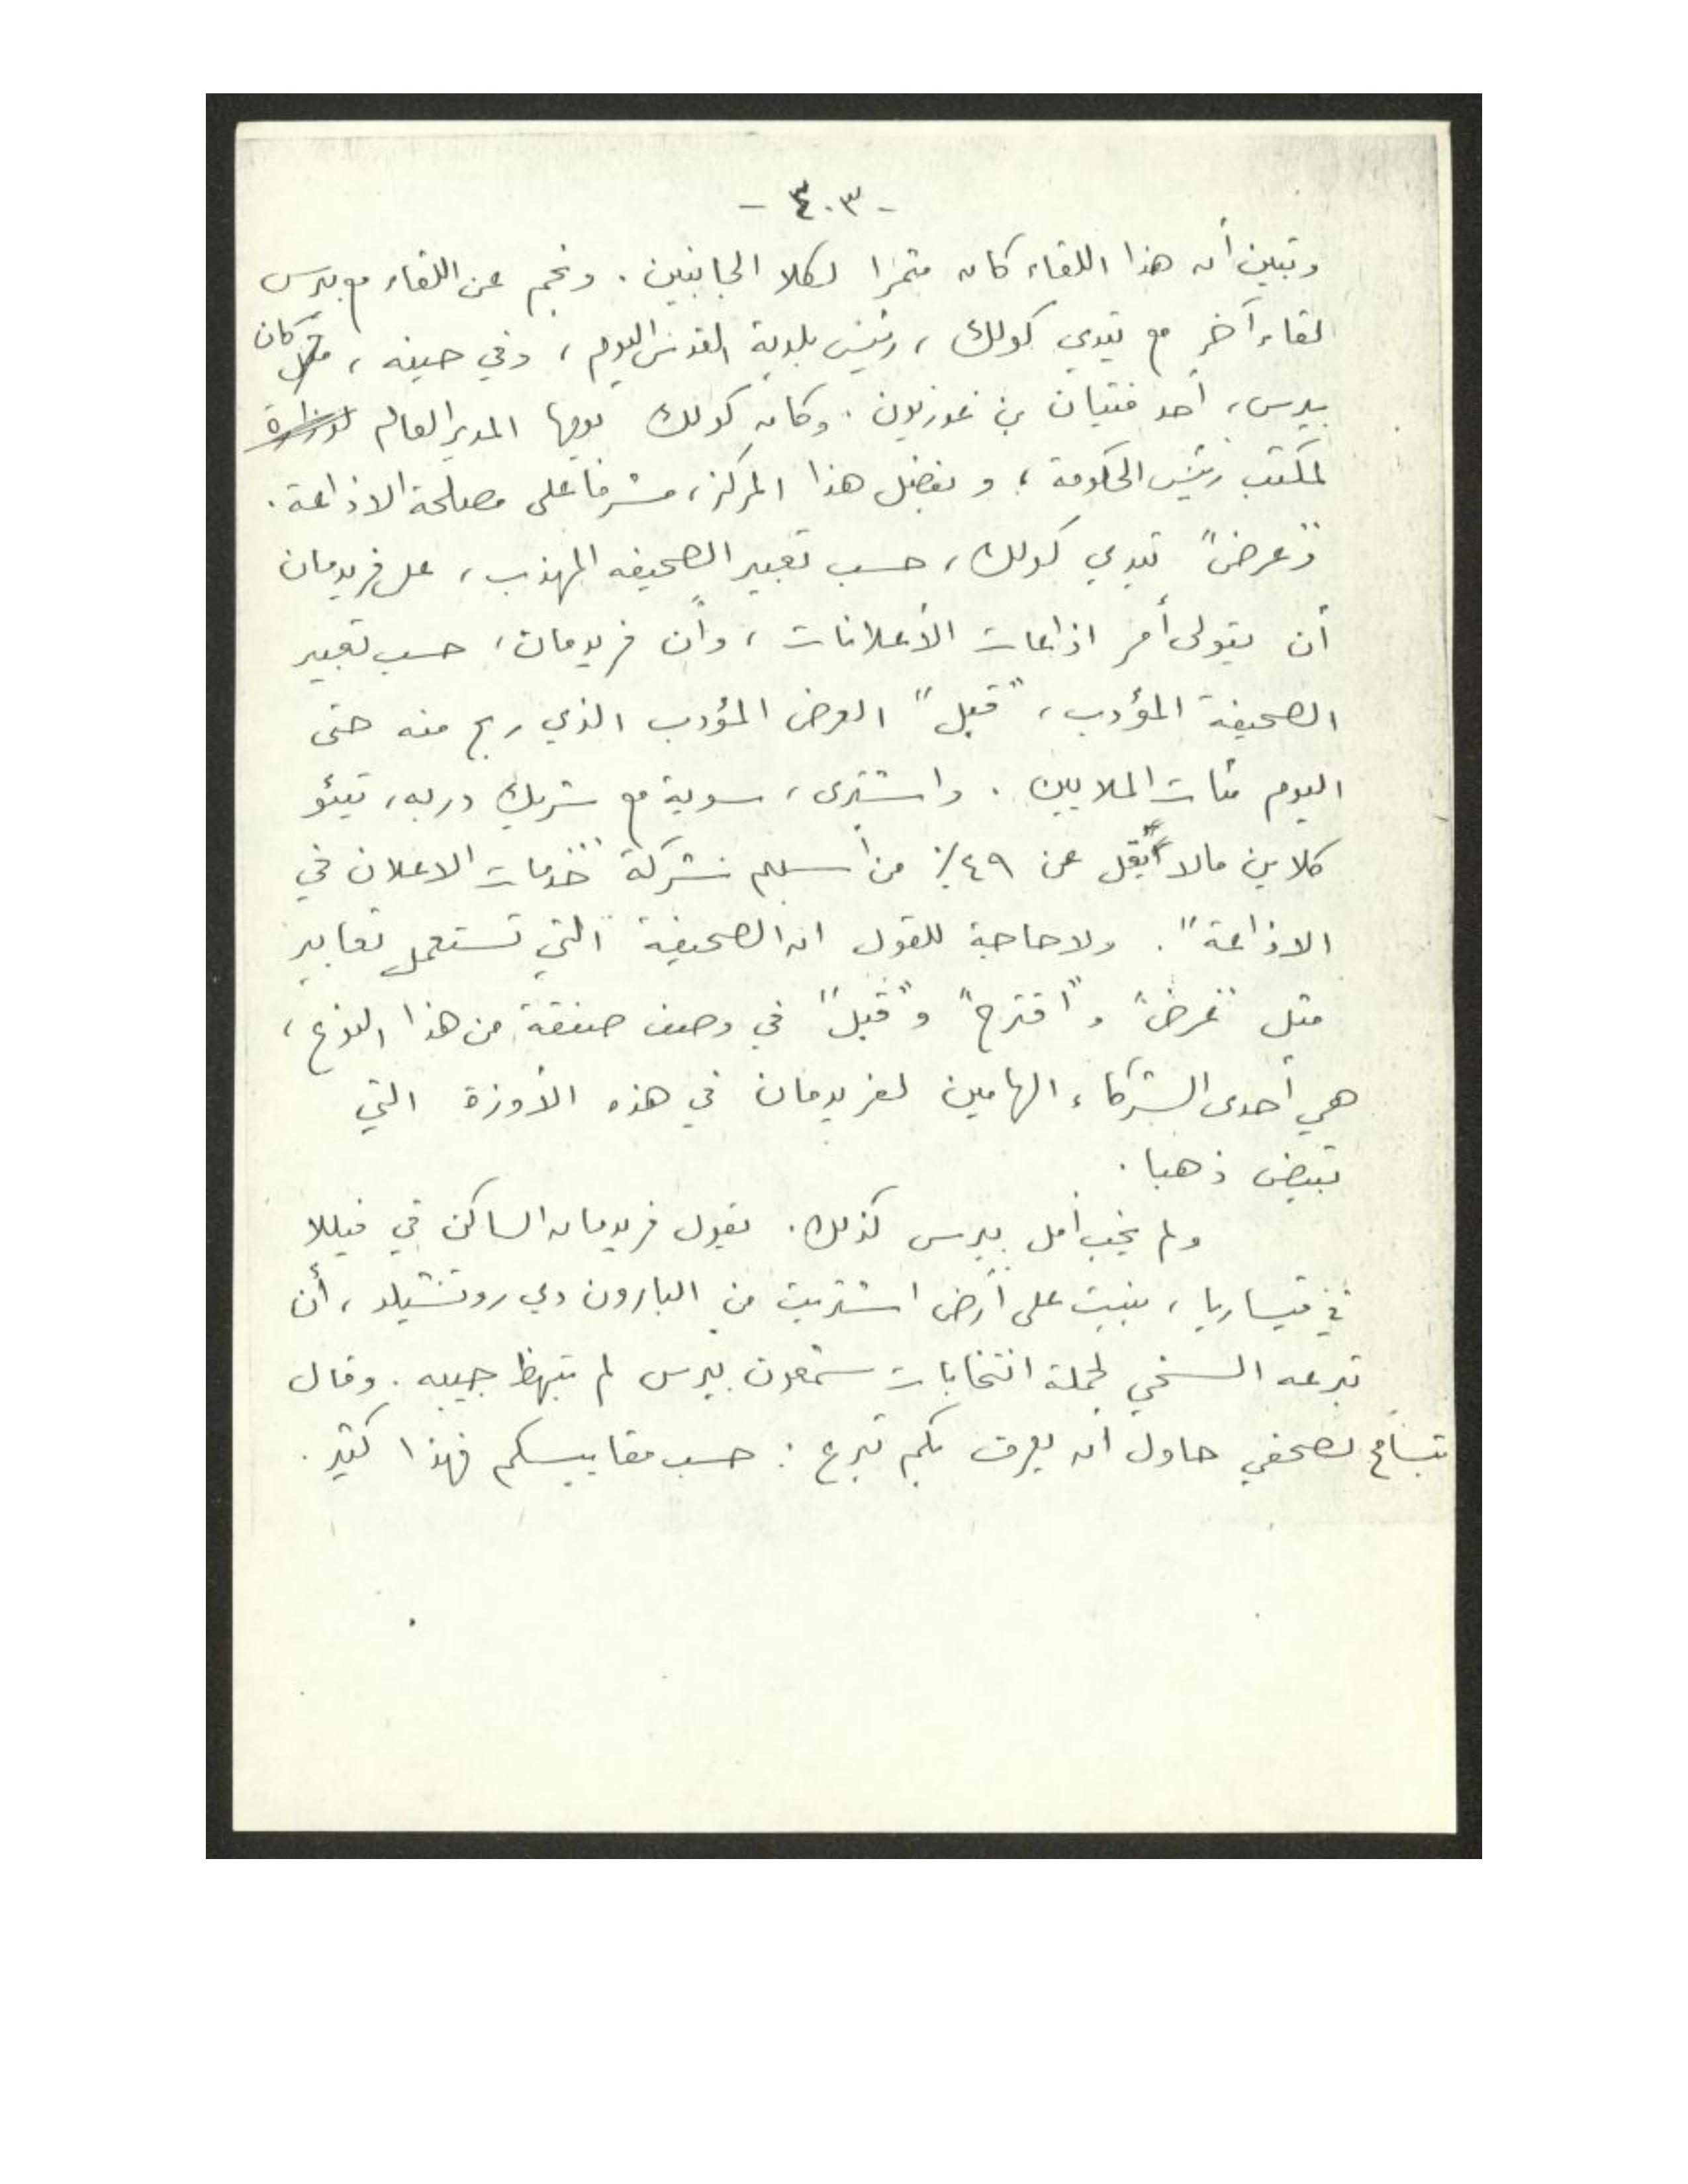 - ٤٠٣ -
وتبين أن هذا اللقاء كان مثمرا لكلا الجانبين. ونجم عن اللقاء مع بيرس
لقاء آخر مع تيدي كولك، رئيس بلدية القدس اليوم، وفي حينه، كان
بيرس، أحد فتيان بن غوريون. وكان كولك يومها المدير العام لوزارة
لمكتب رئيس الحكومة، وبفضل هذا المركز، مشرفا على مصلحة الاذاعة.
و"عرض" تيدي كولك، حسب تعبير الصحيفه المهذب، على فريدمان
أن يتولى أمر اذاعات الأعلانات، وأن فريدمان، حسب تعبير
الصحيفة المؤدب، "قبل" العرض المؤدب الذي ربح منه حتى
اليوم مئات الملايين. واشترى، سوية مع شريك دربه، تيئو
كلاين مالا يقل عن ٤٩٪ من أسهم شركة "خدمات الاعلان في
الاذاعة". ولا حاجة للقول ان الصحيفة التي تستعمل تعابير
مثل "عرض" و"اقترح" و"قبل" في وصف صفقة من هذا النوع،
هي أحدى الشركاء الهامين لفريدمان في هذه الأوزة التي
تبيض ذهبا.
ولم يخب أمل بيرس كذلك. يقول فريدمان الساكن في فيللا
في قيساريا، بنيت على أرض اشتريت من البارون دي روتشيلد، أن
تبرعه السخي لحملة انتخابات شمعون بيرس لم تبهظ جيبه. وقال
بتسامح لصحفي حاول أن يعرف بكم تبرع: حسب مقاييسكم فهذا كثير.